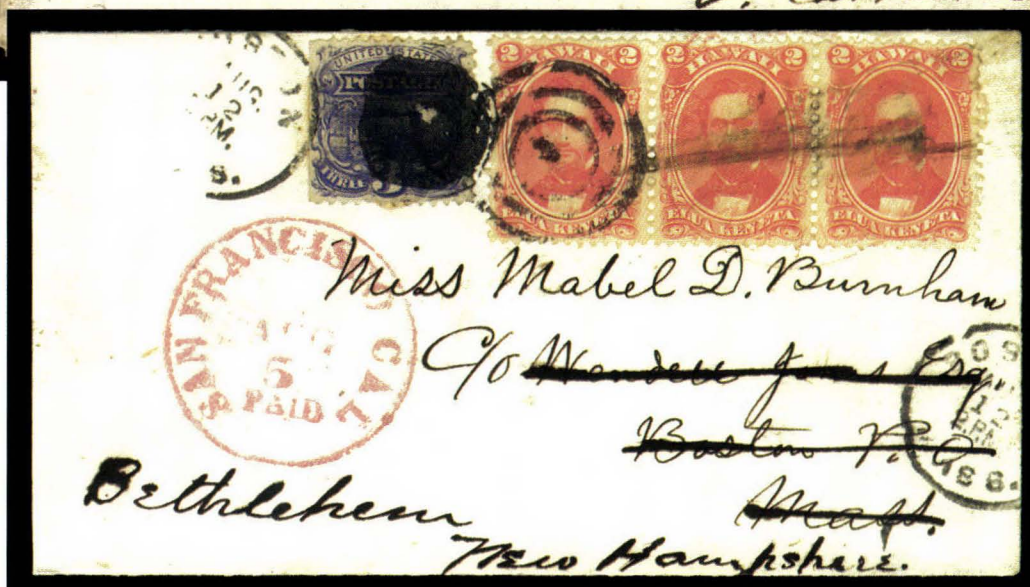 UNITED STATES
POSTAGE
THREE
2 HAWAII 2
ELUA KENETA
2 HAWAII 2
ELUA KENETA
2 HAWAII 2
ELUA KENETA
12
SAN FRANCISCO CAL
AUG
5
PAID
Miss Mabel D. Burnham
C/o Wendell Jones Esq.
Boston P.O.
Mass.
Bethlehem
New Hampshire.
BOS
12
2PM